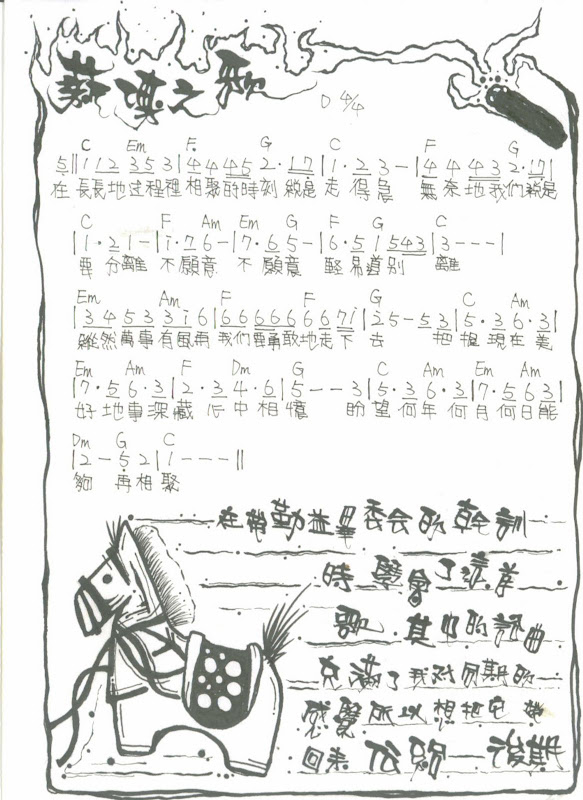 薪傳之歌 D 4/4
C Em F G C F G
5||1 1 2 3 5 3|4 4 4 5 2·1 7|1·2 3 -|4 4 4 3 2·1 7|
在長長地这程裡 相聚的時刻 總是走得急 無奈地我們總是
C F Am Em G F G
|1·2 1 -|1·7 6 -|7·6 5 -|6·5 1 5 4 3|3 - - -|
要分離 不願意 不願意 輕易道別離
Em Am F F G C Am
|3 4 5 3 3 i 6|6 6 6 6 6 6 7 i|2 5 - 5 3|5·3 6·3|
雖然萬事有風雨 我們要勇敢地走下去 把握現在美
Em Am F Dm G C Am Em Am
|7·5 6·3|2·3 4·6|5 - - 3|5·3 6·3|7·5 6 3|
好地事深藏心中相憶 盼望何年何月何日能
Dm G C
|2 - 5 2|1 - - -||
夠再相聚
在 勤益畢委会的幹訓
時 學會了這首
歌 其中的詞曲
充滿了我对同期的
感覺所以想把它帶
回来 後期